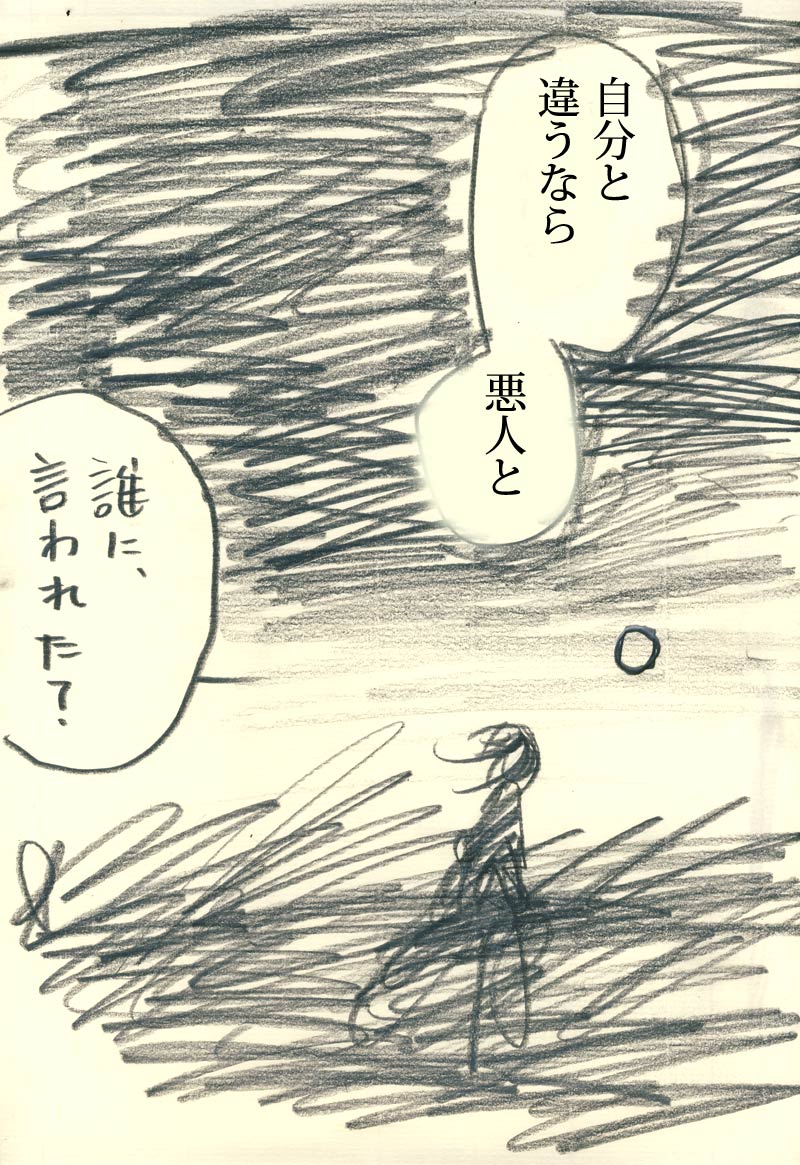 自分と
違うなら
悪人と
誰に、
言われた?